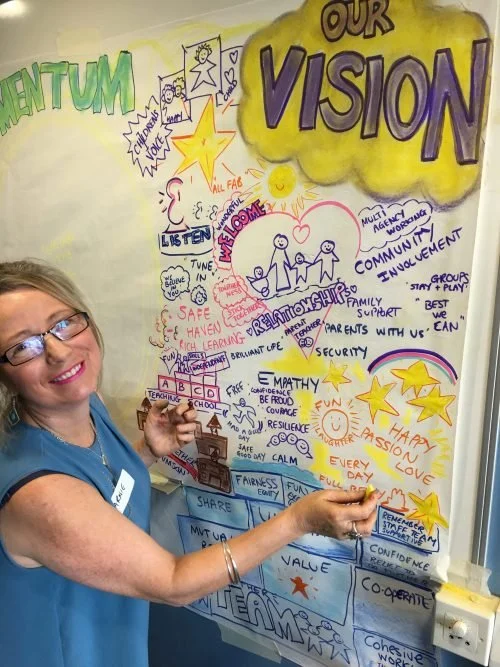 OUR
VISION
MENTUM
HAPPY
CHILDREN'S
VOICE
ALL FAB
WONDERFUL
WELCOME
LISTEN
TUNE
IN
WE
BELIEVE
IN YOU
MULTI
AGENCY
WORKING
COMMUNITY
INVOLVEMENT
GROUPS
"STAY + PLAY"
"BEST
WE
CAN"
RELATIONSHIPS
FAMILY
SUPPORT
PARENT
TEACHER
PARENTS WITH US
SECURITY
SAFE
HAVEN
RICH LEARNING
FUN
SKILLS
INDEPENDENT
BRILLIANT LIFE
A B C D
TEACHING SCHOOL
FREE
EMPATHY
CONFIDENCE
BE PROUD
COURAGE
RESILIENCE
HAD A GOOD
DAY
SAFE
GOOD DAY
CALM
FUN
LAUGHTER
HAPPY
PASSION
LOVE
EVERY
DAY
FULL
FAIRNESS
EQUITY
FUN
REMEMBER
STAFF TEAM
SUPPORTIVE
SHARE
CONFIDENCE
VALUE
CO-OPERATE
TEAM
COHESIVE